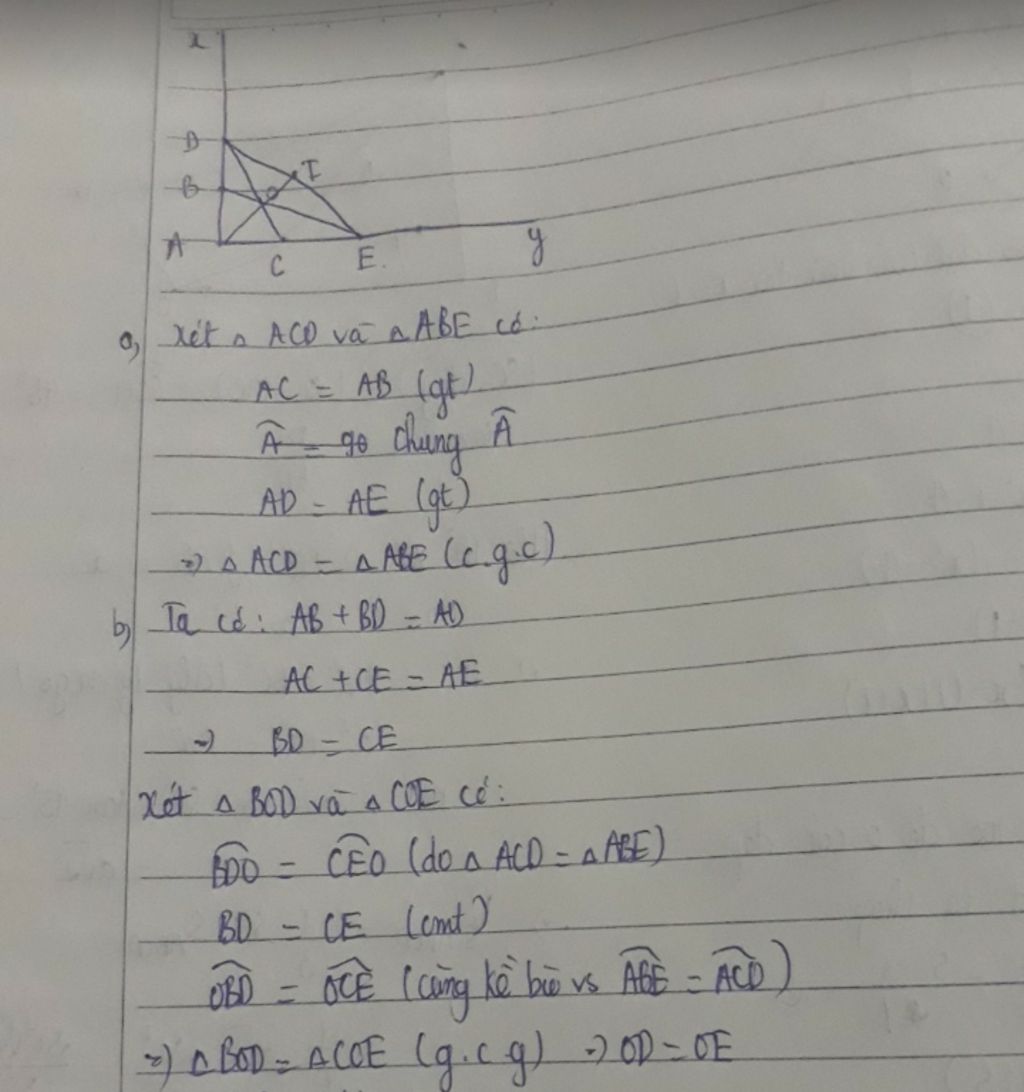 x
D
I
B
O
A
C
E.
y
a) Xét △ ACD và △ ABE có:
AC = AB (gt)
Â = 90 chung Â
AD = AE (gt)
=> △ ACD = △ ABE (c.g.c)
b) Ta có: AB + BD = AD
AC + CE = AE
=> BD = CE
Xét △ BOD và △ COE có:
\widehat{BDO} = \widehat{CEO} (do △ ACD = △ ABE)
BD = CE (cmt)
\widehat{OBD} = \widehat{OCE} (cùng kề bù vs \widehat{ABE} = \widehat{ACD})
=> △ BOD = △ COE (g.c.g) => OD = OE